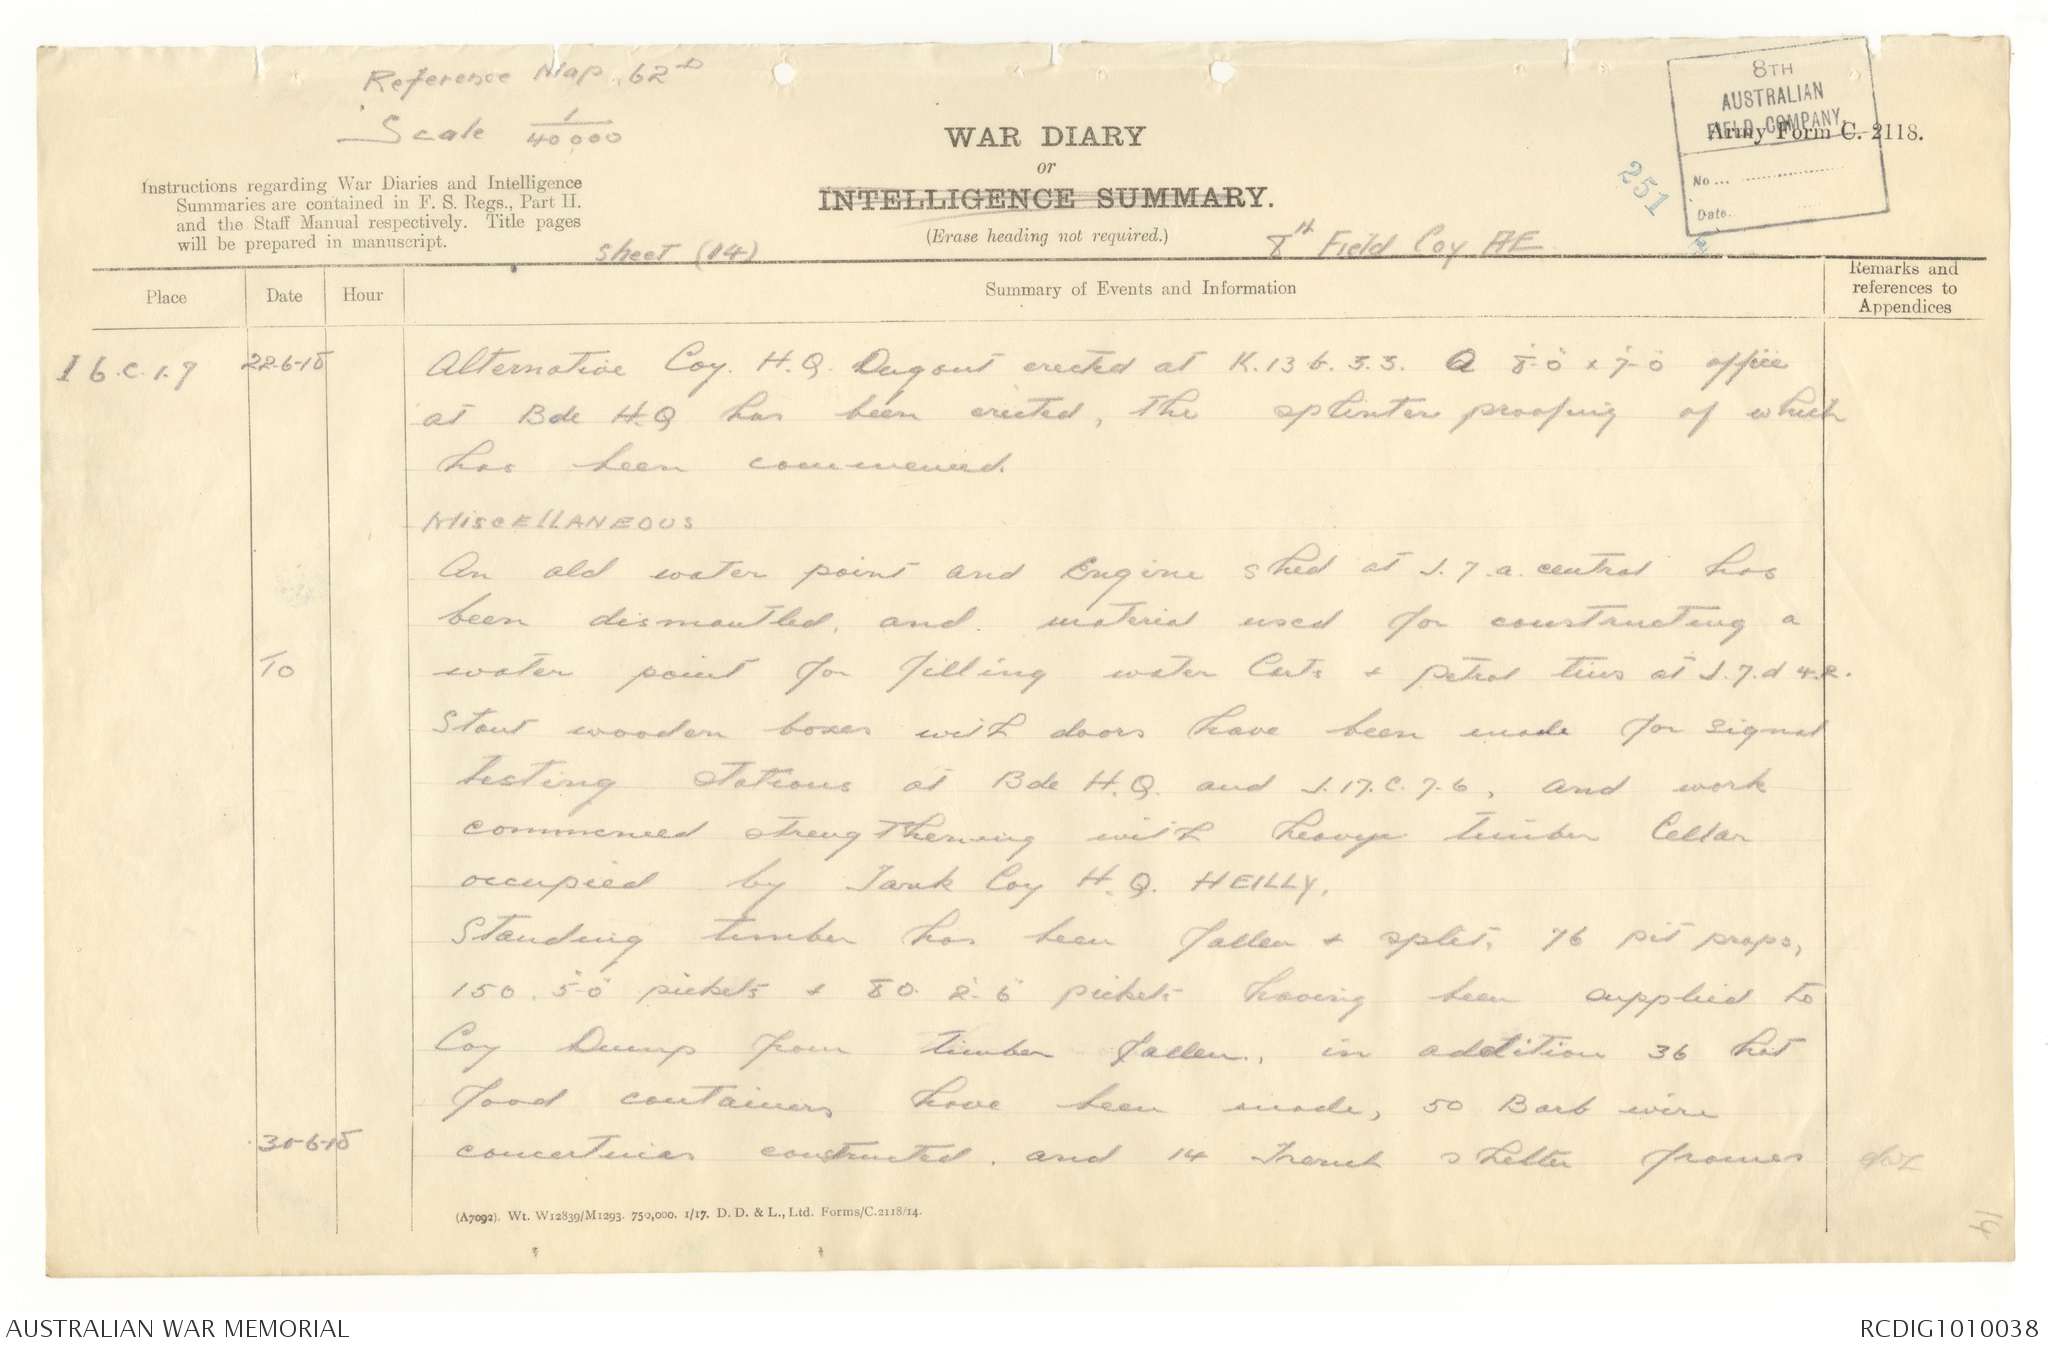 Reference Map 62D
Scale 1/40,000
8TH
AUSTRALIAN
FIELD COMPANY.
No...
Date.
Army Form C. 2118.
251
WAR DIARY
or
INTELLIGENCE SUMMARY.
(Erase heading not required.)
Instructions regarding War Diaries and Intelligence
Summaries are contained in F. S. Regs., Part II.
and the Staff Manual respectively. Title pages
will be prepared in manuscript.
Sheet (14)
8th Field Coy AE
Place
Date
Hour
Summary of Events and Information
Remarks and
references to
Appendices
I 6.c.1.9 22-6-18 Alternative Coy. H.Q. Dugout erected at K.13.b.3.3. A 8'-0" x 7'-0" office
at Bde H.Q has been erected, the splinter proofing of which
has been commenced.
MISCELLANEOUS
An old water point and Engine shed at J.7.a. central has
been dismantled, and material used for constructing a
To water point for filling water Carts + petrol tins at J.7.d 4.2.
Stout wooden boxes with doors have been made for signal
testing stations at Bde H.Q. and J.17.c.7.6, and work
commenced strengthening with heavy timber Cellar
occupied by Tank Coy H.Q. HEILLY.
Standing timber has been fallen + split, 76 pit props,
150. 5'-0" pickets + 80. 2'-6" pickets having been supplied to
Coy Dump from timber fallen, in addition 36 hot
food containers have been made, 50 Barb wire
30-6-18 concertinas constructed, and 14 Trench shelter frames
(A7092). Wt. W12839/M1293. 750,000. 1/17. D. D. & L., Ltd. Forms/C.2118/14.
14
AUSTRALIAN WAR MEMORIAL
RCDIG1010038